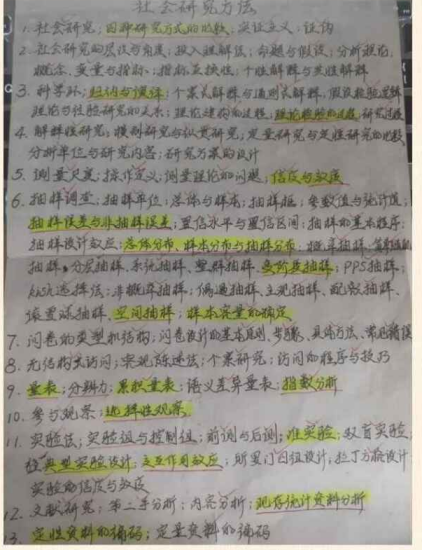 社会研究方法
1. 社会研究；四种研究方式的比较；实证主义；证伪
2. 社会研究的层次与角度；投入理解法；命题与假设；分析理论；
概念、变量与指标；指标互换性；个性解释与共性解释
3. 科学环；归纳与演绎；个案式解释与通则式解释，假设检验逻辑
理论与经验研究的关系；理论建构的过程；理论检验的过程；研究过程
4. 解释性研究；横剖研究与纵贯研究；定量研究与定性研究的比较
分析单位与研究内容；研究方案的设计
5. 测量尺度；操作定义；测量理论的问题；信度与效度
6. 抽样调查；抽样单位；总体与样本；抽样框；参数值与统计值；
抽样误差与非抽样误差；置信水平与置信区间；抽样的基本程序；
抽样设计效应；总体分布、样本分布与抽样分布；概率抽样、简单随机
抽样、分层抽样、系统抽样、整群抽样、多阶段抽样；PPS抽样；
户内选择法；非概率抽样；偶遇抽样、主观抽样、配额抽样、
滚雪球抽样、空间抽样；样本容量的确定
7. 问卷的类型和结构；问卷设计的基本原则、步骤、具体方法、常见错误
8. 无结构式访问；客观陈述法；个案研究；访问的程序与技巧
9. 量表；分辨力；累积量表；语义差异量表；指数分析
10. 参与观察；选择性观察
11. 实验法；实验组与控制组；前测与后测；准实验；双盲实验
典型实验设计；交互作用效应；所罗门四组设计；拉丁方格设计
实验的信度与效度
12. 文献研究；第二手分析；内容分析；现存统计资料分析
13. 定性资料的编码；定量资料的编码